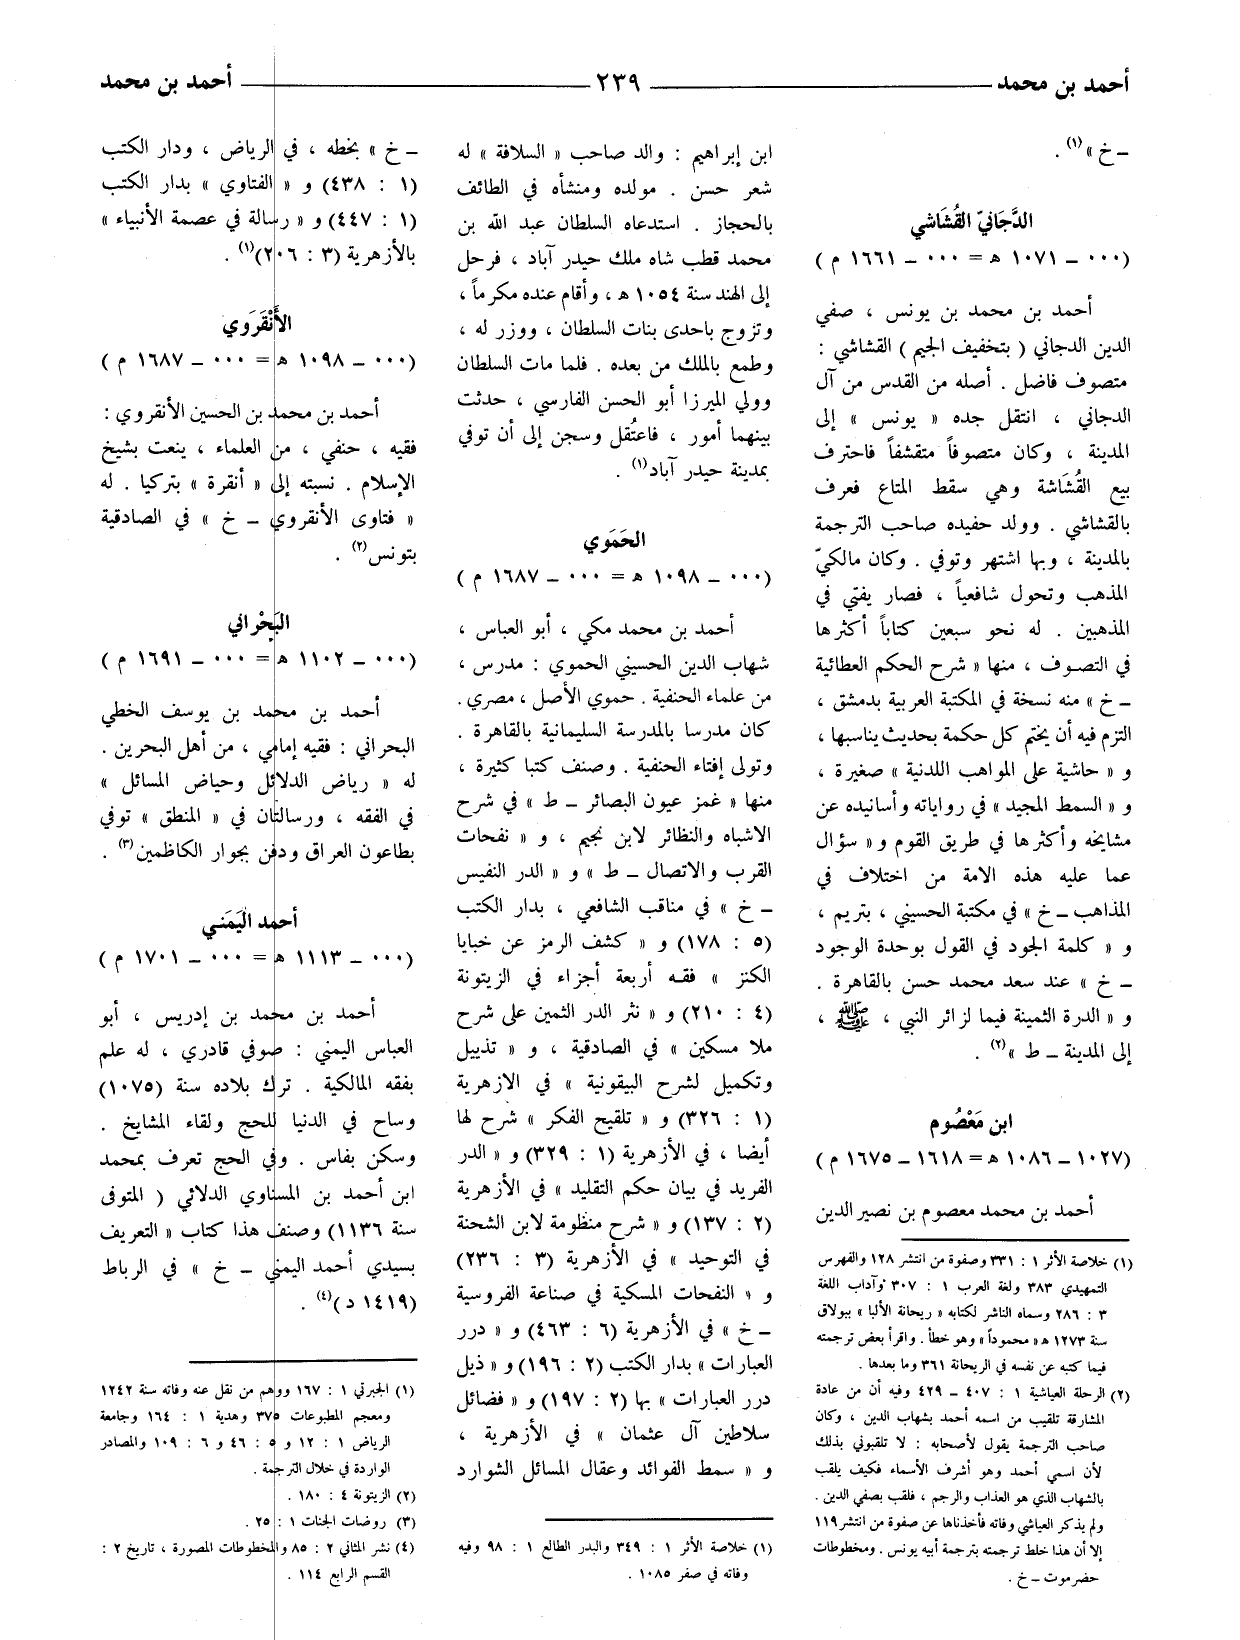 أحمد بن محمد ٢٣٩ أحمد بن محمد
ـ خ »(١) .
الدَّجَانيّ القُشَاشي
(٠٠٠ ـ ١٠٧١ هـ = ٠٠٠ ـ ١٦٦١ م)
أحمد بن محمد بن يونس ، صفي
الدين الدجاني ( بتخفيف الجيم ) القشاشي :
متصوف فاضل . أصله من القدس من آل
الدجاني ، انتقل جده « يونس » إلى
المدينة ، وكان متصوفاً متقشفاً فاحترف
بيع القُشَاشة وهي سقط المتاع فعرف
بالقشاشي . وولد حفيده صاحب الترجمة
بالمدينة ، وبها اشتهر وتوفي . وكان مالكيّ
المذهب وتحول شافعياً ، فصار يفتي في
المذهبين . له نحو سبعين كتاباً أكثرها
في التصوف ، منها « شرح الحكم العطائية
ـ خ » منه نسخة في المكتبة العربية بدمشق ،
التزم فيه أن يختم كل حكمة بحديث يناسبها ،
و « حاشية على المواهب اللدنية » صغيرة ،
و « السمط المجيد » في رواياته وأسانيده عن
مشايخه وأكثرها في طريق القوم و « سؤال
عما عليه هذه الامة من اختلاف في
المذاهب ـ خ » في مكتبة الحسيني ، بتريم ،
و « كلمة الجود في القول بوحدة الوجود
ـ خ » عند سعد محمد حسن بالقاهرة .
و « الدرة الثمينة فيما لزائر النبي ، ﷺ ،
إلى المدينة ـ ط »(٢) .
ابن مَعْصُوم
(١٠٢٧ ـ ١٠٨٦ هـ = ١٦١٨ ـ ١٦٧٥ م)
أحمد بن محمد معصوم بن نصير الدين
(١) خلاصة الأثر ١ : ٣٣١ وصفوة من انتشر ١٢٨ والفهرس
التمهيدي ٣٨٣ ولغة العرب ١ : ٣٠٧ وآداب اللغة
٣ : ٢٨٦ وسماه الناشر لكتابه « ريحانة الألبا » ببولاق
سنة ١٢٧٣ هـ « محموداً » وهو خطأ . واقرأ بعض ترجمته
فيما كتبه عن نفسه في الريحانة ٣٦١ وما بعدها .
(٢) الرحلة العياشية ١ : ٤٠٧ ـ ٤٢٩ وفيه أن من عادة
المشارقة تلقيب من اسمه أحمد بشهاب الدين ، وكان
صاحب الترجمة يقول لأصحابه : لا تلقبوني بذلك
لأن اسمي أحمد وهو أشرف الأسماء فكيف يلقب
بالشهاب الذي هو العذاب والرجم ، فلقب بصفي الدين .
ولم يذكر العياشي وفاته فأخذناها عن صفوة من انتشر ١١٩
إلا أن هذا خلط ترجمته بترجمة أبيه يونس . ومخطوطات
حضرموت ـ خ .
ابن إبراهيم : والد صاحب « السلافة » له
شعر حسن . مولده ومنشأه في الطائف
بالحجاز . استدعاه السلطان عبد الله بن
محمد قطب شاه ملك حيدر آباد ، فرحل
إلى الهند سنة ١٠٥٤ هـ ، وأقام عنده مكرماً ،
وتزوج باحدى بنات السلطان ، ووزر له ،
وطمع بالملك من بعده . فلما مات السلطان
وولي الميرزا أبو الحسن الفارسي ، حدثت
بينهما أمور ، فاعتُقل وسجن إلى أن توفي
بمدينة حيدر آباد(١) .
الحَمَوي
(٠٠٠ ـ ١٠٩٨ هـ = ٠٠٠ ـ ١٦٨٧ م)
أحمد بن محمد مكي ، أبو العباس ،
شهاب الدين الحسيني الحموي : مدرس ،
من علماء الحنفية . حموي الأصل ، مصري .
كان مدرسا بالمدرسة السليمانية بالقاهرة .
وتولى إفتاء الحنفية . وصنف كتبا كثيرة ،
منها « غمز عيون البصائر ـ ط » في شرح
الاشباه والنظائر لابن نجيم ، و « نفحات
القرب والاتصال ـ ط » و « الدر النفيس
ـ خ » في مناقب الشافعي ، بدار الكتب
(٥ : ١٧٨) و « كشف الرمز عن خبايا
الكنز » فقه أربعة أجزاء في الزيتونة
(٤ : ٢١٠) و « نثر الدر الثمين على شرح
ملا مسكين » في الصادقية ، و « تذييل
وتكميل لشرح البيقونية » في الازهرية
(١ : ٣٢٦) و « تلقيح الفكر » شرح لها
أيضا ، في الأزهرية (١ : ٣٢٩) و « الدر
الفريد في بيان حكم التقليد » في الأزهرية
(٢ : ١٣٧) و « شرح منظومة لابن الشحنة
في التوحيد » في الأزهرية (٣ : ٢٣٦)
و « النفحات المسكية في صناعة الفروسية
ـ خ » في الأزهرية (٦ : ٤٦٣) و « درر
العبارات » بدار الكتب (٢ : ١٩٦) و « ذيل
درر العبارات » بها (٢ : ١٩٧) و « فضائل
سلاطين آل عثمان » في الأزهرية ،
و « سمط الفوائد وعقال المسائل الشوارد
(١) خلاصة الأثر ١ : ٣٤٩ والبدر الطالع ١ : ٩٨ وفيه
وفاته في صفر ١٠٨٥ .
ـ خ » بخطه ، في الرياض ، ودار الكتب
(١ : ٤٣٨) و « الفتاوي » بدار الكتب
(١ : ٤٤٧) و « رسالة في عصمة الأنبياء »
بالأزهرية (٣ : ٢٠٦)(١) .
الأَنْقَرَوي
(٠٠٠ ـ ١٠٩٨ هـ = ٠٠٠ ـ ١٦٨٧ م)
أحمد بن محمد بن الحسين الأنقروي :
فقيه ، حنفي ، من العلماء ، ينعت بشيخ
الإسلام . نسبته إلى « أنقرة » بتركيا . له
« فتاوى الأنقروي ـ خ » في الصادقية
بتونس(٢) .
البَحْراني
(٠٠٠ ـ ١١٠٢ هـ = ٠٠٠ ـ ١٦٩١ م)
أحمد بن محمد بن يوسف الخطي
البحراني : فقيه إمامي ، من أهل البحرين .
له « رياض الدلائل وحياض المسائل »
في الفقه ، ورسالتان في « المنطق » توفي
بطاعون العراق ودفن بجوار الكاظمين(٣) .
أحمد اليَمَني
(٠٠٠ ـ ١١١٣ هـ = ٠٠٠ ـ ١٧٠١ م)
أحمد بن محمد بن إدريس ، أبو
العباس اليمني : صوفي قادري ، له علم
بفقه المالكية . ترك بلاده سنة (١٠٧٥)
وساح في الدنيا للحج ولقاء المشايخ .
وسكن بفاس . وفي الحج تعرف بمحمد
ابن أحمد بن المسناوي الدلائي ( المتوفى
سنة ١١٣٦) وصنف هذا كتاب « التعريف
بسيدي أحمد اليمني ـ خ » في الرباط
(١٤١٩ د)(٤) .
(١) الجبرتي ١ : ١٦٧ ووهم من نقل عنه وفاته سنة ١٢٤٢
ومعجم المطبوعات ٣٧٥ وهدية ١ : ١٦٤ وجامعة
الرياض ١ : ١٢ و ٥ : ٤٦ و ٦ : ١٠٩ والمصادر
الواردة في خلال الترجمة .
(٢) الزيتونة ٤ : ١٨٠ .
(٣) روضات الجنات ١ : ٢٥ .
(٤) نشر المثاني ٢ : ٨٥ والمخطوطات المصورة ، تاريخ ٢ :
القسم الرابع ١١٤ .